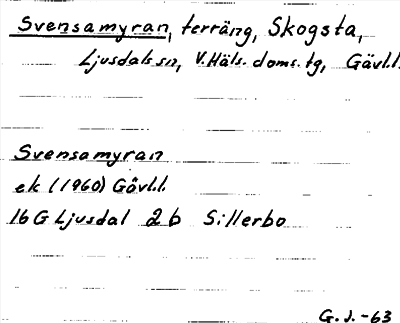 Svensamyran, terräng, Skogsta,
Ljusdals sn, V. Häls. doms. tg, Gävl.l.
Svensamyran
ek (1960) Gävl.l.
16 G Ljusdal 2 b Sillerbo
G. J. -63